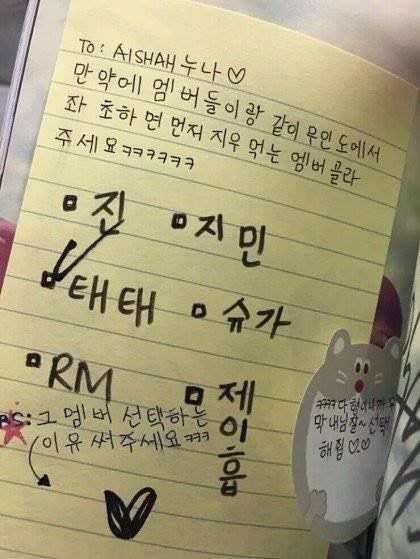 To: AISHAH 누나 ♡
만약에 멤버들이랑 같이 무인도에서
좌초하면 먼저 지우 먹는 멤버 골라
주세요 ㅋㅋㅋㅋㅋㅋ
진 지민
태태 슈가
RM 제이홉
PS: 그 멤버 선택하는
이유 써주세요 ㅋㅋㅋ
ㅋㅋㅋㅋ다
막내님 잘~ 선택
해줘 ♡♡